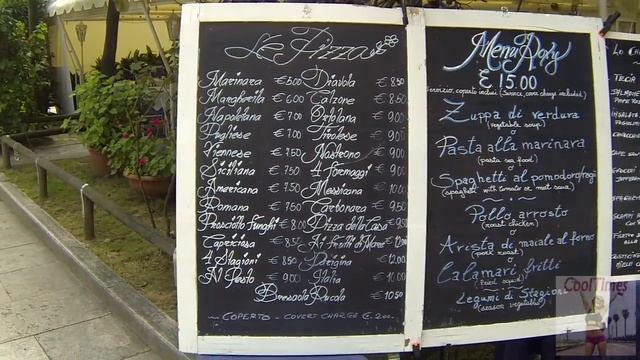 Le Pizza
Marinara € 5.00 Diavola € 8.50
Margherita € 6.00 Calzone € 8.50
Napoletana € 7.00 Ortolana € 9.00
Pugliese € 7.00 Tirolese € 9.00
Viennese € 7.50 Nostromo € 9.00
Siciliana € 7.50 4 Formaggi € 9.00
Americana € 7.50 Messicana
Romana € 7.50 Carbonara € 9.50
Prosciutto Funghi € 8.00 Pizza della Casa € 9.50
Capricciosa € 8.50 Ai frutti di Mare
4 Stagioni € 8.50 Parigina
Al Pesto € 9.00 Italia
Bresaola Rucola € 10.50
COPERTO - COVERT CHARGE €. 2.00.
Menu
€ 15.00
Servizio, coperto inclusi (Service, cover charge included)
Zuppa di verdura
(vegetable soup)
o
Pasta alla marinara
(pasta sea food)
o
Spaghetti al pomodoro/ragù
(spaghetti with tomato or meat sauce)
Pollo arrosto
(roast chicken)
o
Arista di maiale al forno
(pork roast)
o
Calamari fritti
(fried squid)
Legumi di Stagione
(season vegetable)
CoolTimes